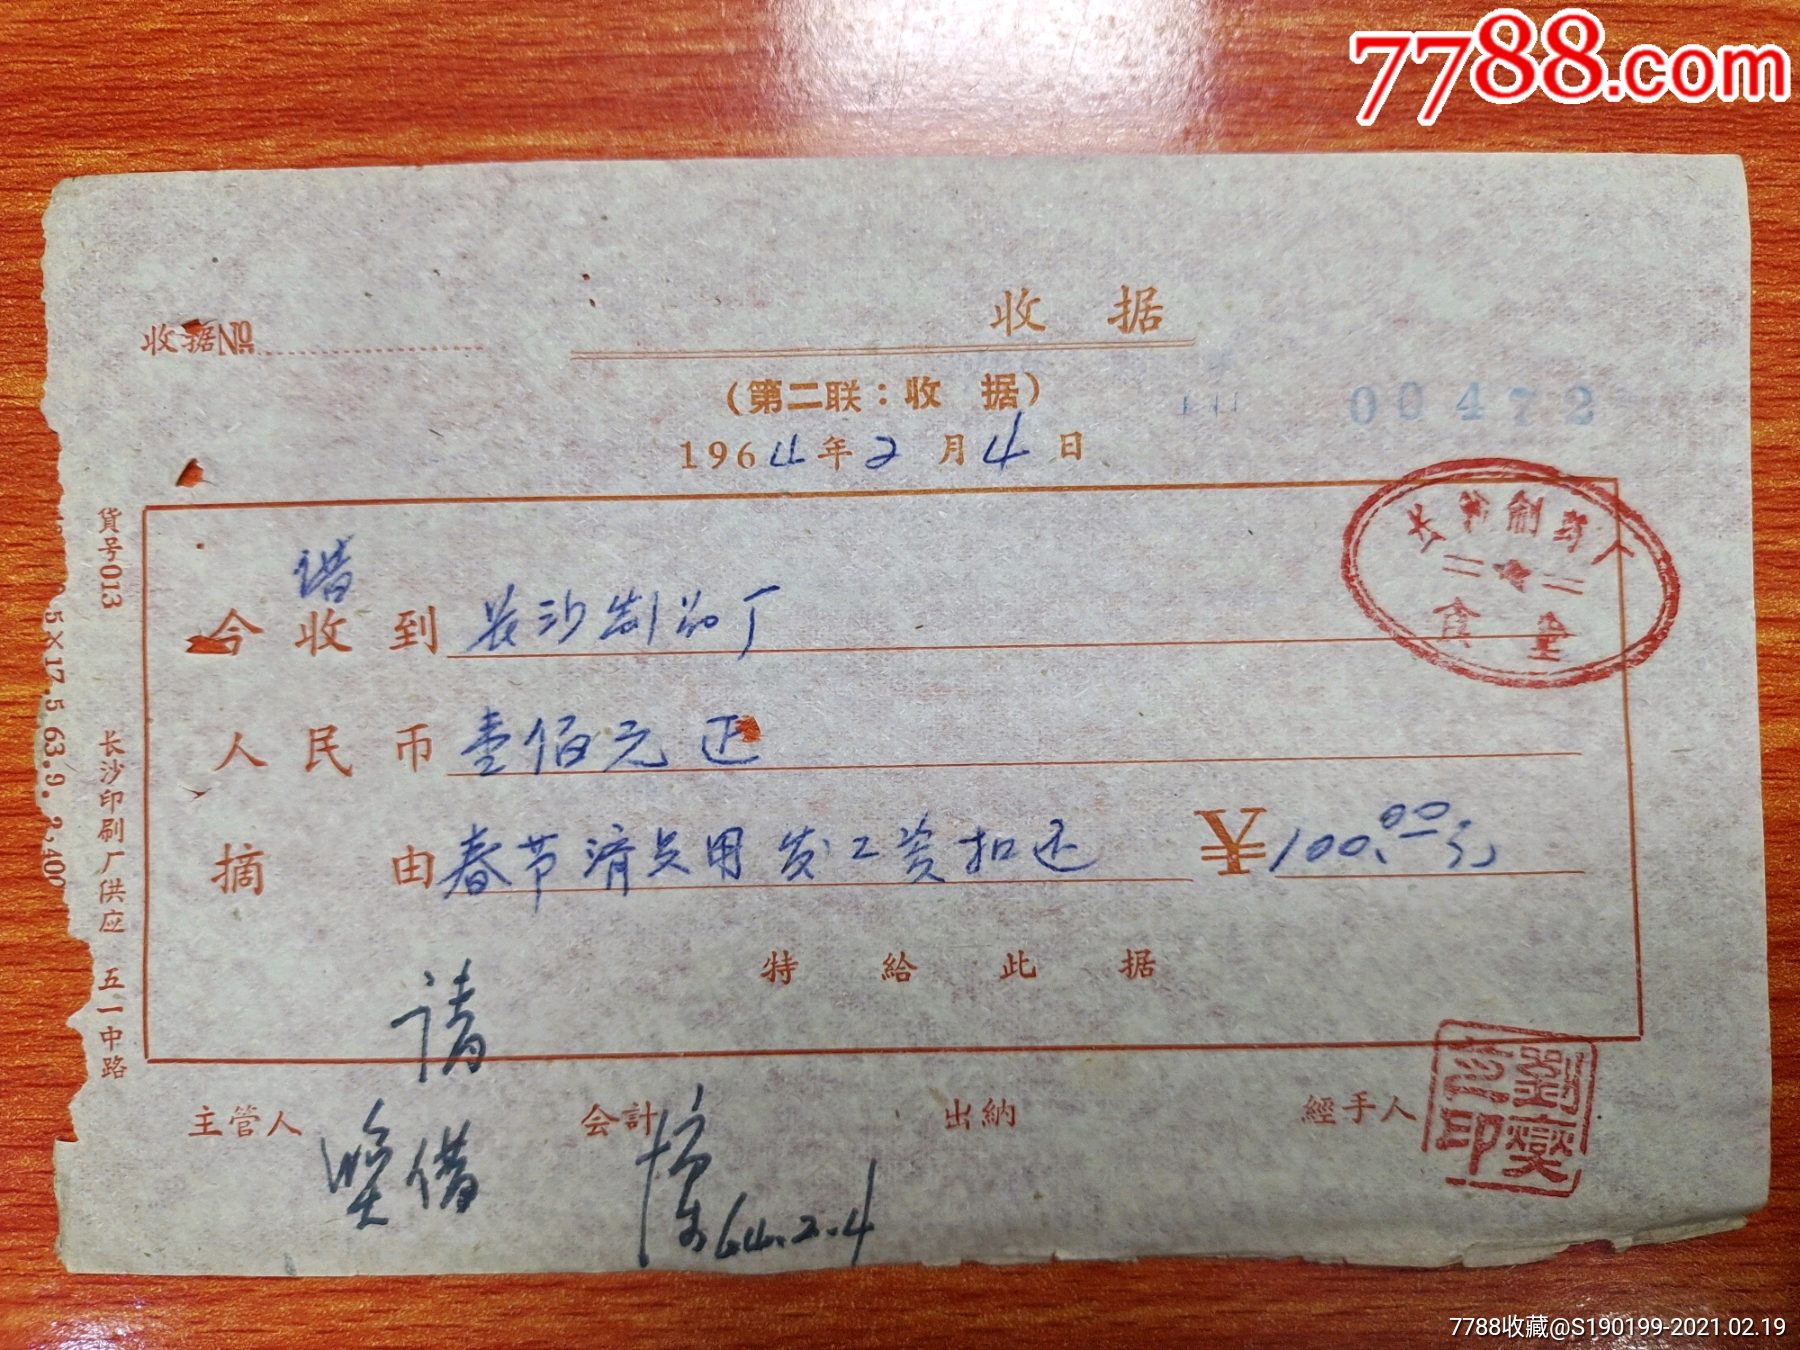 7788.com
收据
收据No
(第二联：收 据)
00472
1964年2月4日
长沙制药厂
食堂
借
今收到 长沙制药厂
人民币 壹佰元正
摘由 春节清点用发工资扣还 ¥100.00元
特给此据
请
主管人 会計 出納 經手人
借
64.2.4
劉燮之印
貨号013
5×17.5 63.9.
长沙印刷厂供应 五一中路
7788收藏@S190199-2021.02.19